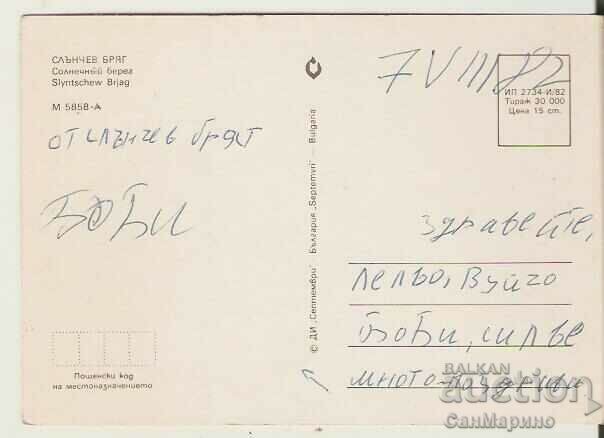 СЛЪНЧЕВ БРЯГ
Солнечный берег
Slyntschew Brjag
М 5858-А
от слънчев бряг
БОБИ
Пощенски код
на местоназначението
© ДИ „Септември" — България „Septemvri" — Bulgaria
7 VIII 82
ИП 2734-И/82
Тираж 30 000
Цена 15 ст.
здравейте,
лельо, Вуйчо
БОБИ, 
много поздрави
BALKAN
auction
СанМарино